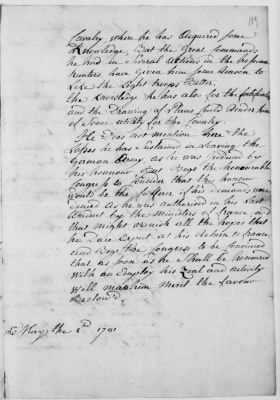 Cavalry where he has Acquired Some
Knowledge, But the Great Commands
he had in Several Actions in the
hunters have Given him Some Reason to
Like the Light troops Better.
the Knowledge he has also for the fortification
and the Drawing of Plans Could Render him
of Some utility for the Country
He Does not mention here the
Losses he has Sustained in Leaving the
German Army, as he was Guided by
his honour But Begs the honourable
Congress to Consider that his honour
would be the Sufferer if his Demand were
As he was authorised in his Last
Conduct by the Ministers of France and
that might vanish all the hopes that
he Dare Expect at his Return to france
and Begs the Congress to be Convinced
that as Soon as he Shall be honoured
With an Employ his Zeal and activity
Will make him Merit the favour
Bestow'd.
the 2d 1781